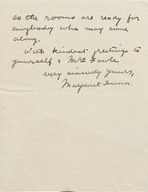 so the rooms are ready for
anybody who may come
along.
With kindest greetings to
yourself & Mrs
very sincerely yours,
Margaret